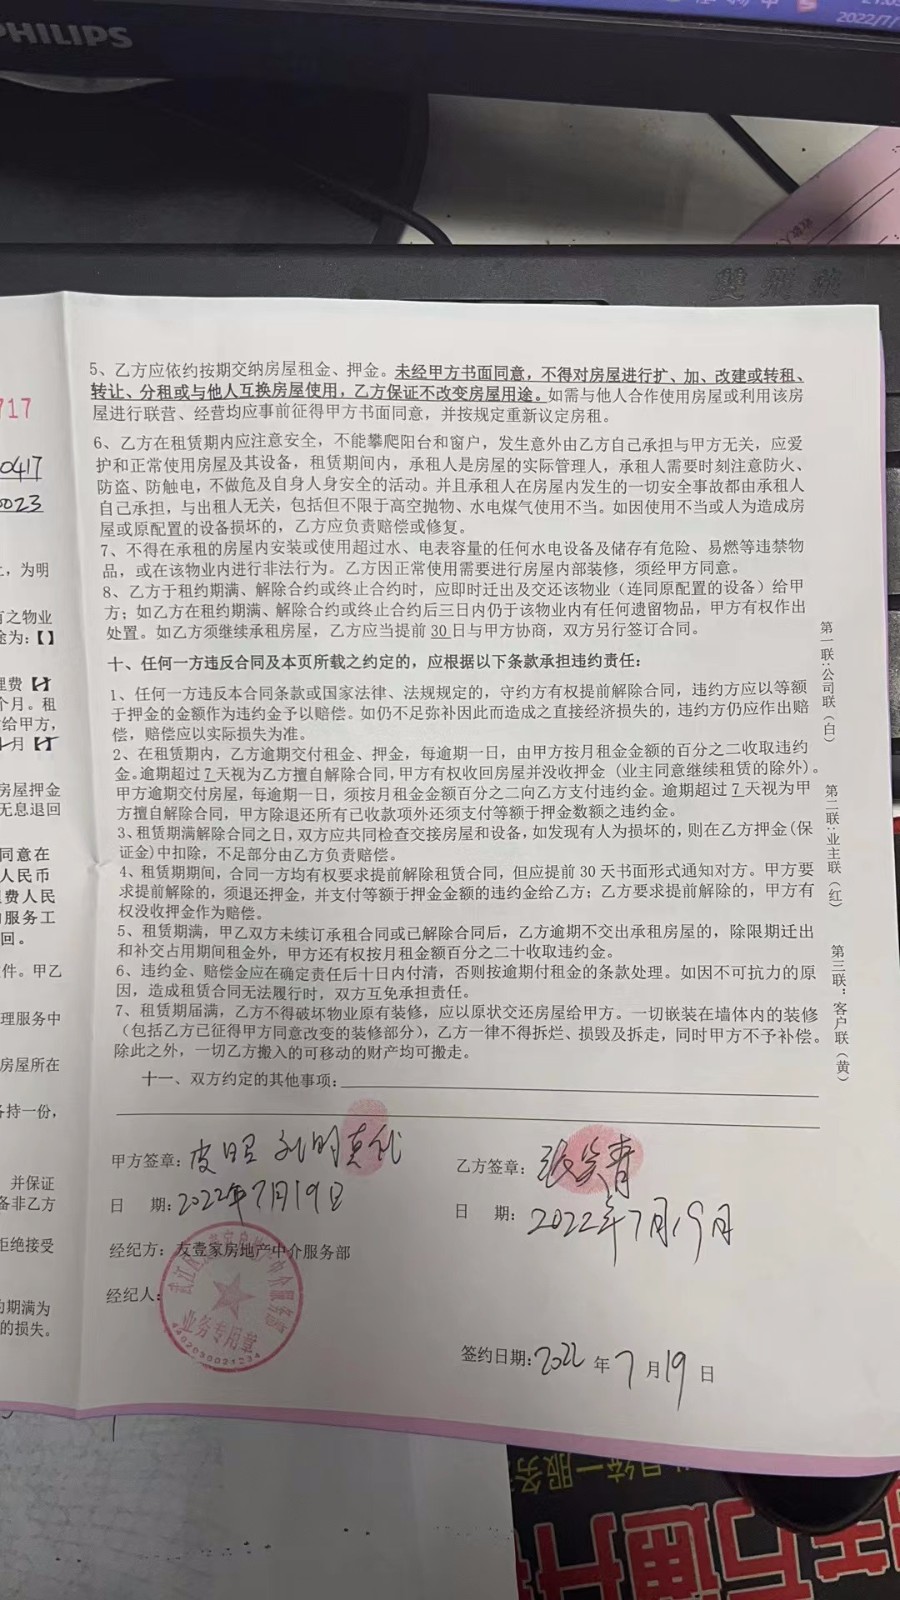 PHILIPS
2022/7/
5、乙方应依约按期交纳房屋租金、押金。未经甲方书面同意，不得对房屋进行扩、加、改建或转租、
转让、分租或与他人互换房屋使用，乙方保证不改变房屋用途。如需与他人合作使用房屋或利用该房
屋进行联营、经营均应事前征得甲方书面同意，并按规定重新议定房租。
6、乙方在租赁期内应注意安全，不能攀爬阳台和窗户，发生意外由乙方自己承担与甲方无关，应爱
护和正常使用房屋及其设备，租赁期间内，承租人是房屋的实际管理人，承租人需要时刻注意防火、
防盗、防触电，不做危及自身人身安全的活动。并且承租人在房屋内发生的一切安全事故都由承租人
自己承担，与出租人无关，包括但不限于高空抛物、水电煤气使用不当。如因使用不当或人为造成房
屋或原配置的设备损坏的，乙方应负责赔偿或修复。
7、不得在承租的房屋内安装或使用超过水、电表容量的任何水电设备及储存有危险、易燃等违禁物
品，或在该物业内进行非法行为。乙方因正常使用需要进行房屋内部装修，须经甲方同意。
8、乙方于租约期满、解除合约或终止合约时，应即时迁出及交还该物业（连同原配置的设备）给甲
方；如乙方在租约期满、解除合约或终止合约后三日内仍于该物业内有任何遗留物品，甲方有权作出
处置。如乙方须继续承租房屋，乙方应当提前30日与甲方协商，双方另行签订合同。
十、任何一方违反合同及本页所载之约定的，应根据以下条款承担违约责任：
1、任何一方违反本合同条款或国家法律、法规规定的，守约方有权提前解除合同，违约方应以等额
于押金的金额作为违约金予以赔偿。如仍不足弥补因此而造成之直接经济损失的，违约方仍应作出赔
偿，赔偿应以实际损失为准。
2、在租赁期内，乙方逾期交付租金、押金，每逾期一日，由甲方按月租金金额的百分之二收取违约
金。逾期超过7天视为乙方擅自解除合同，甲方有权收回房屋并没收押金（业主同意继续租赁的除外）。
甲方逾期交付房屋，每逾期一日，须按月租金金额百分之二向乙方支付违约金。逾期超过7天视为甲
方擅自解除合同，甲方除退还所有已收款项外还须支付等额于押金数额之违约金。
3、租赁期满解除合同之日，双方应共同检查交接房屋和设备，如发现有人为损坏的，则在乙方押金(保
证金)中扣除，不足部分由乙方负责赔偿。
4、租赁期期间，合同一方均有权要求提前解除租赁合同，但应提前30天书面形式通知对方。甲方要
求提前解除的，须退还押金，并支付等额于押金金额的违约金给乙方；乙方要求提前解除的，甲方有
权没收押金作为赔偿。
5、租赁期满，甲乙双方未续订承租合同或已解除合同后，乙方逾期不交出承租房屋的，除限期迁出
和补交占用期间租金外，甲方还有权按月租金额百分之二十收取违约金。
6、违约金、赔偿金应在确定责任后十日内付清，否则按逾期付租金的条款处理。如因不可抗力的原
因，造成租赁合同无法履行时，双方互免承担责任。
7、租赁期届满，乙方不得破坏物业原有装修，应以原状交还房屋给甲方。一切嵌装在墙体内的装修
（包括乙方已征得甲方同意改变的装修部分），乙方一律不得拆烂、损毁及拆走，同时甲方不予补偿。
除此之外，一切乙方搬入的可移动的财产均可搬走。
十一、双方约定的其他事项：
甲方签章：
乙方签章：
日 期：2022年7月19日
日 期：2022年7月19月
经纪方：友壹家房地产中介服务部
经纪人：
业务专用章
签约日期：2022年7月19日
第一联：公司联（白）
第二联：业主联（红）
第三联：客户联（黄）
717
0417
0023
，为明
有之物业
途为：【】
理费
个月。租
给甲方，
房屋押金
无息退回
同意在
人民币
费人民
服务工
回。
件。甲乙
理服务中
房屋所在
各持一份，
并保证
备非乙方
拒绝接受
期满为
的损失。